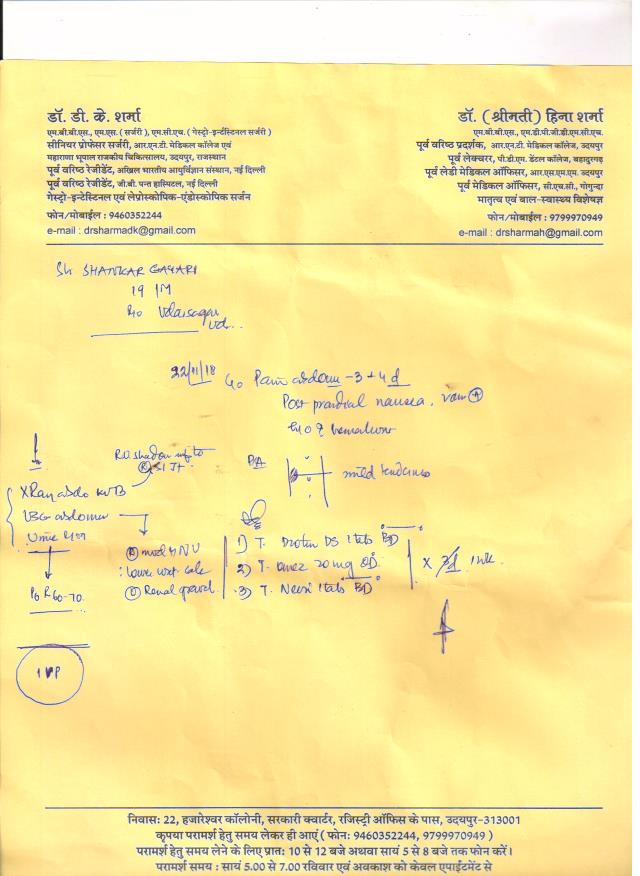 डॉ. डी. के. शर्मा
एम.बी.बी.एस., एम.एस. ( सर्जरी ), एम.सी.एच. ( गेस्ट्रो-इन्टेंस्टिनल सर्जरी )
सीनियर प्रोफेसर सर्जरी, आर.एन.टी. मेडिकल कॉलेज एवं
महाराणा भूपाल राजकीय चिकित्सालय, उदयपुर, राजस्थान
पूर्व वरिष्ठ रेजीडेंट, अखिल भारतीय आयुर्विज्ञान संस्थान, नई दिल्ली
पूर्व वरिष्ठ रेजीडेंट, जी.बी. पन्त हास्पिटल, नई दिल्ली
गेस्ट्रो-इन्टेस्टिनल एवं लेप्रोस्कोपिक-एंडोस्कोपिक सर्जन
फोन/मोबाईल : 9460352244
e-mail : drsharmadk@gmail.com
डॉ. (श्रीमती) हिना शर्मा
एम.बी.बी.एस., एम.डी.पी.जी.डी.एम.सी.एच.
पूर्व वरिष्ठ प्रदर्शक, आर.एन.टी. मेडिकल कॉलेज, उदयपुर
पूर्व लेक्चरर, पी.डी.एम. डेंटल कॉलेज, बहादुरगढ़
पूर्व लेडी मेडिकल ऑफिसर, आर.एस.एम.एम. उदयपुर
पूर्व मेडिकल ऑफिसर, सी.एच.सी., गोगुन्दा
मातृत्व एवं बाल-स्वास्थ्य विशेषज्ञ
फोन/मोबाईल : 9799970949
e-mail : drsharmah@gmail.com
Sh SHANKAR GAYARI
19 /M
R/o Udaisagar
Ud..
22/11/18 c/o Pain abdomen -3+4 d
Post prandial nausea, vom +
P/A mild tenderness
X Ray abdo KUB
USG abdomen
Urine
1) T. DS 1 tab BD
2) T. Omez 20 mg OD
3) T. 1 tab BD
X 1 wk
IVP
निवास: 22, हजारेश्वर कॉलोनी, सरकारी क्वार्टर, रजिस्ट्री ऑफिस के पास, उदयपुर-313001
कृपया परामर्श हेतु समय लेकर ही आएं ( फोन: 9460352244, 9799970949 )
परामर्श हेतु समय लेने के लिए प्रात: 10 से 12 बजे अथवा सायं 5 से 8 बजे तक फोन करें।
परामर्श समय : सायं 5.00 से 7.00 रविवार एवं अवकाश को केवल एपाईंटमेंट से